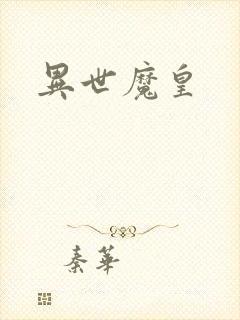 異世魔皇
秦華